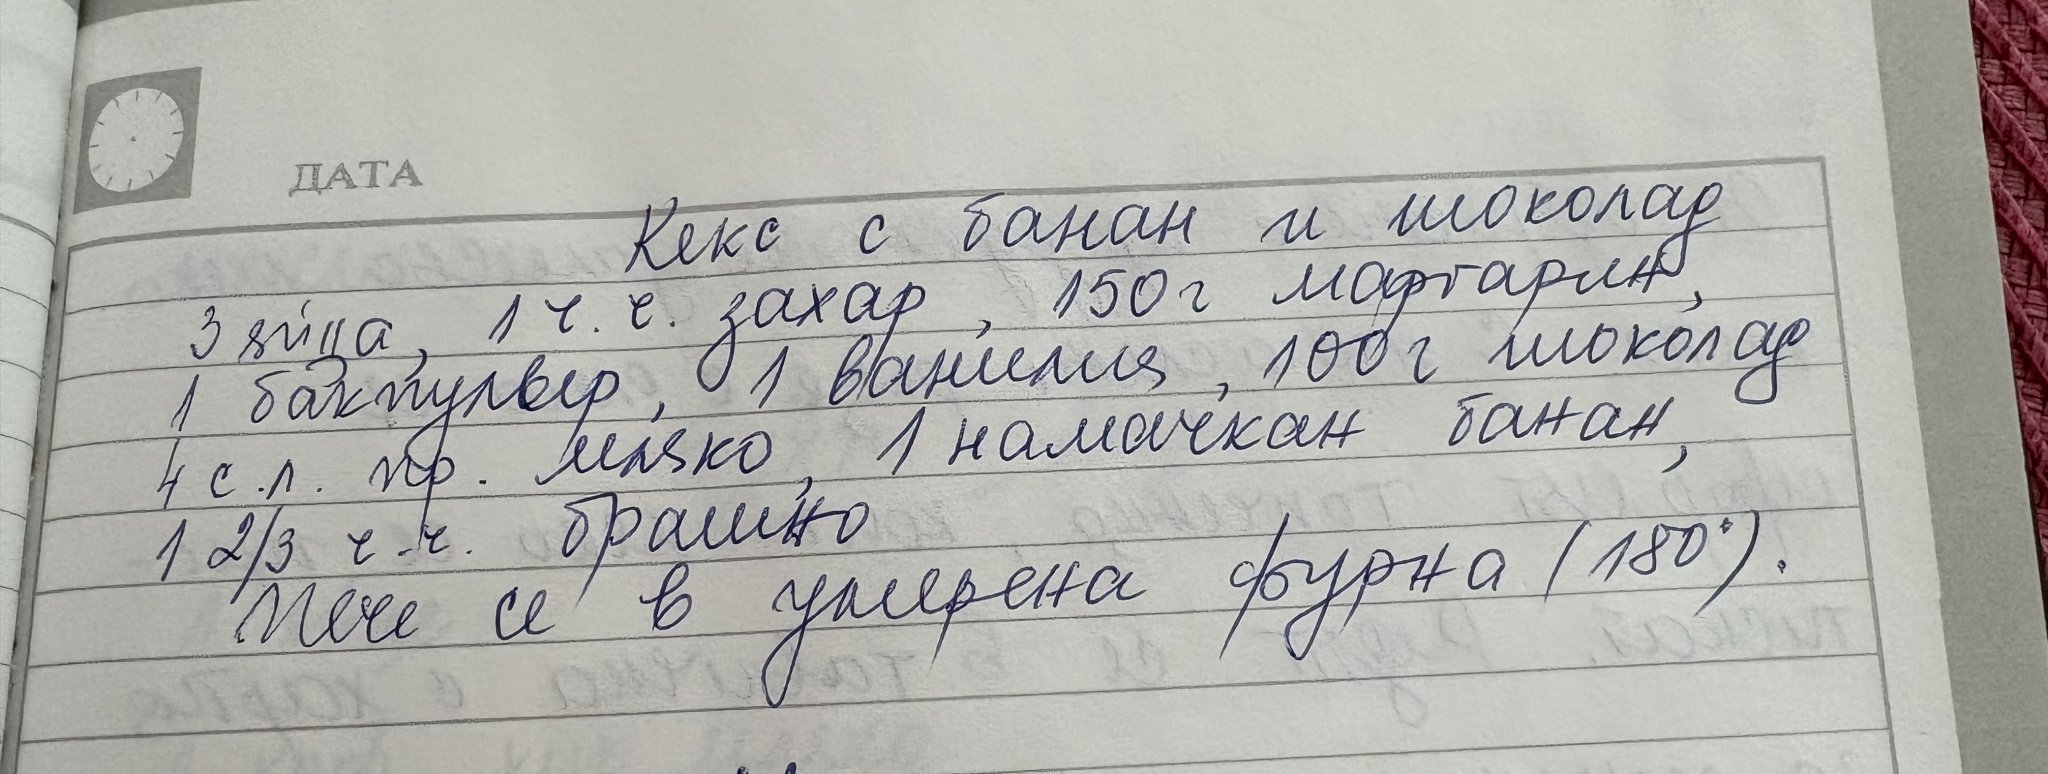 ДАТА
Кекс с банан и шоколад
3 яйца, 1 ч.ч. захар, 150г маргарин,
1 бакпулвер, 1 ванилия, 100г шоколад
4 с.л. пр. мляко, 1 намачкан банан,
1 2/3 ч.ч. брашно
Пече се в умерена фурна (180°).